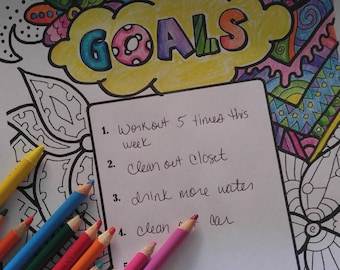 GOALS
1. Workout 5 times this
week
2. Clean out closet
3. drink more water
4. clean car